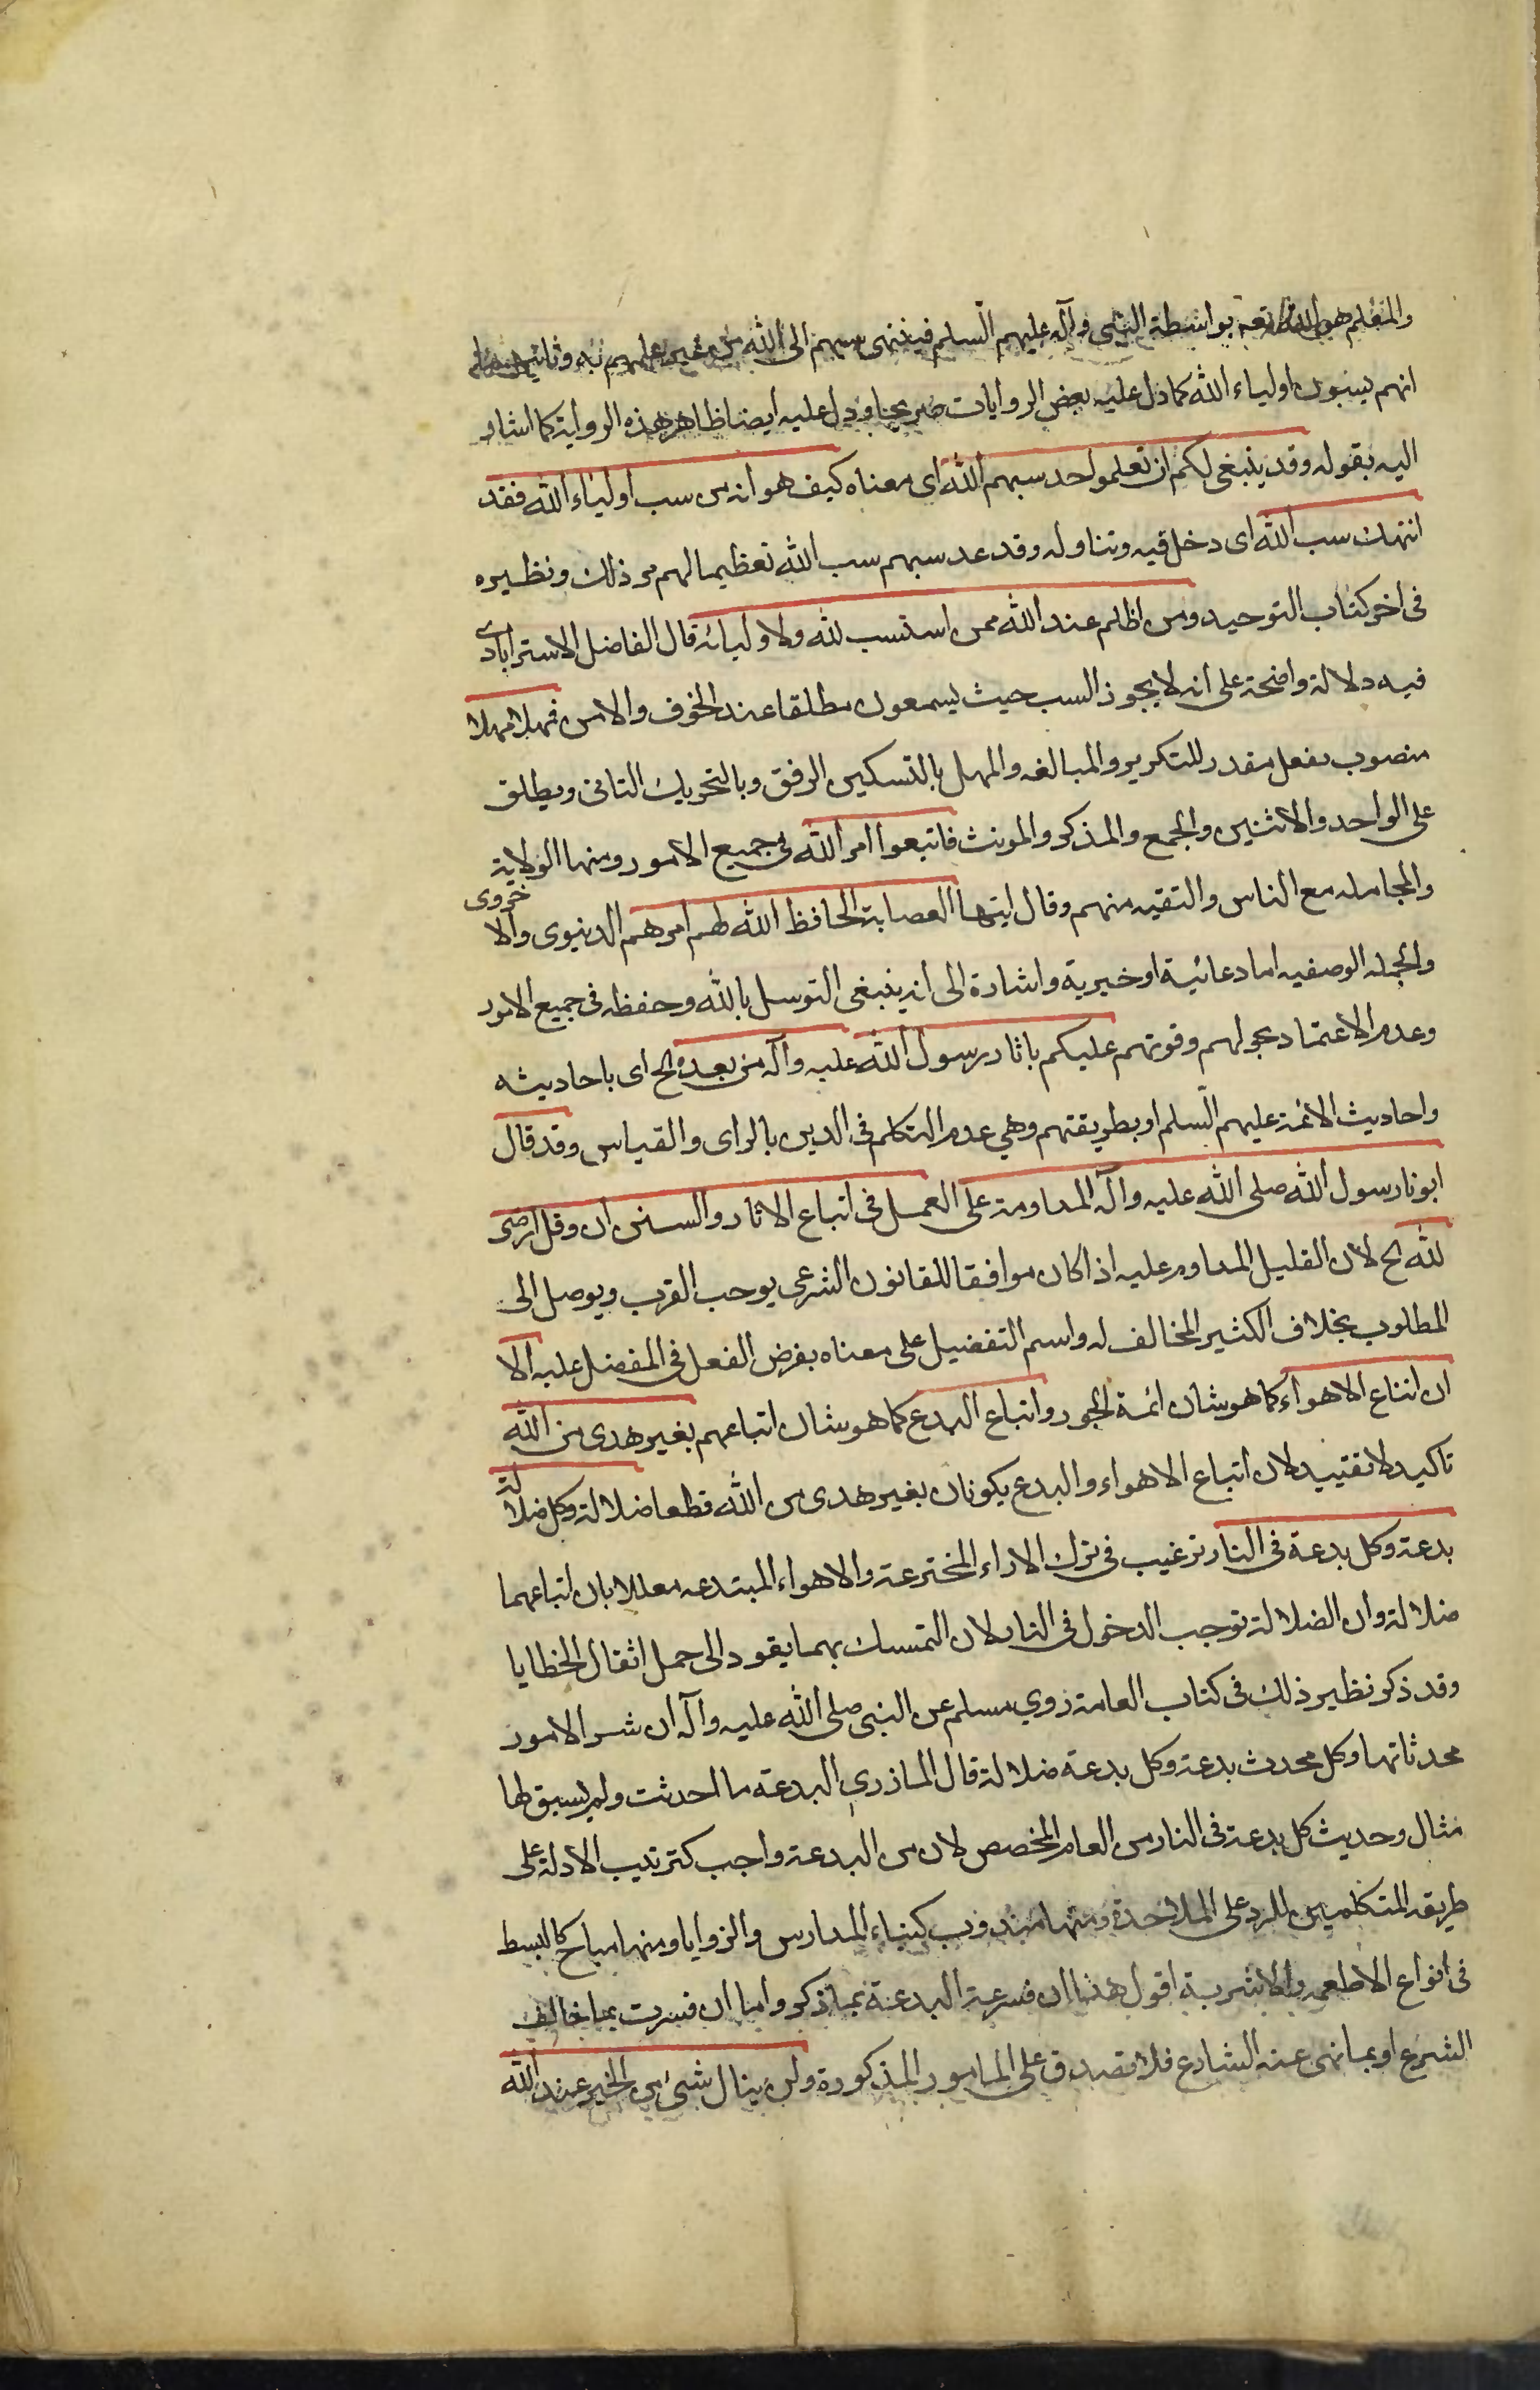 والمنعم هو الله تعه بواسطة النبى وآله عليهم السلم فينتهى سبهم الى الله من غير علمهم به وثانيهما
انهم يسبون اولياء الله كما دل عليه بعض الروايات صريحا ودل عليه ايضا ظاهر هذه الرواية كما اشار
اليه بقوله وقد ينبغى لكم ان تعلموا حد سبهم الله اى معناه كيف هو انه من سب اولياء الله فقد
انتهك سب الله اى دخل فيه وتناوله وقد عد سبهم سب الله تعظيما لهم مر ذلك ونظيره
فى اخر كتاب التوحيد ومن اظلم عند الله ممن استسب لله ولاوليائه قال الفاضل الاسترابادى
فيه دلالة واضحة على انه لا يجوز السب حيث يسمعون مطلقا عند الخوف والامن فمهلا مهلا
منصوب بفعل مقدر للتكرير والمبالغه والمهل بالتسكين الرفق وبالتحريك التانى ويطلق
على الواحد والاثنين والجمع والمذكر والمونث فاتبعوا امر الله فى جميع الامور ومنها الولاية
والمجامله مع الناس والتقيه منهم وقال ايتها العصابة الحافظ الله لهم امرهم الدنيوى والاخروى
والجمله الوصفيه اما دعائية او خبرية واشارة الى انه ينبغى التوسل بالله وحفظه فى جميع الامور
وعدم الاعتماد بحولهم وقوتهم عليكم باثار رسول الله عليه وآله من بعده الح اى باحاديثه
واحاديث الائمة عليهم السلم او بطريقتهم وهي عدم التكلم فى الدين بالراى والقياس وقد قال
ابونا رسول الله صلى الله عليه وآله المداومة على العمل فى اتباع الاثار والسنن ان وقل ارضى
لله الح لان القليل المداوم عليه اذا كان موافقا للقانون الشرعى يوجب القرب ويوصل الى
المطلوب بخلاف الكثير المخالف له واسم التفضيل على معناه بفرض الفعل فى المفضل عليه الا
ان اتباع الاهواء كما هو شان ائمة الجور واتباع البدع كما هو شان اتباعهم بغير هدى من الله
تاكيد لا تقييد لان اتباع الاهواء والبدع يكونان بغير هدى من الله قطعا ضلالة وكل ضلالة
بدعة وكل بدعة فى النار ترغيب فى ترك الاراء المخترعة والاهواء المبتدعه معللا بان اتباعهما
ضلالة وان الضلالة توجب الدخول فى النار لان التمسك بهما يقود الى حمل اثقال الخطايا
وقد ذكر نظير ذلك فى كتاب العامة روي مسلم عن النبى صلى الله عليه وآله ان شر الامور
محدثاتها وكل محدث بدعة وكل بدعة ضلالة قال المازرى البدعة ما احدثت ولم يسبق لها
مثال وحديث كل بدعة فى النار من العام المخصص لان من البدعة واجب كترتيب الادلة على
طريقه المتكلمين للرد على الملاحدة ومنها مندوب كبناء المدارس والزوايا ومنها مباح كالبسط
فى انواع الاطعمه والاشربة اقول هذا ان فسرت البدعة بما ذكر واما ان فسرت بما خالف
الشرع او بما نهى عنه الشارع فلا تصدق على المامور المذكورة ولن ينال شئ من الخير عند الله